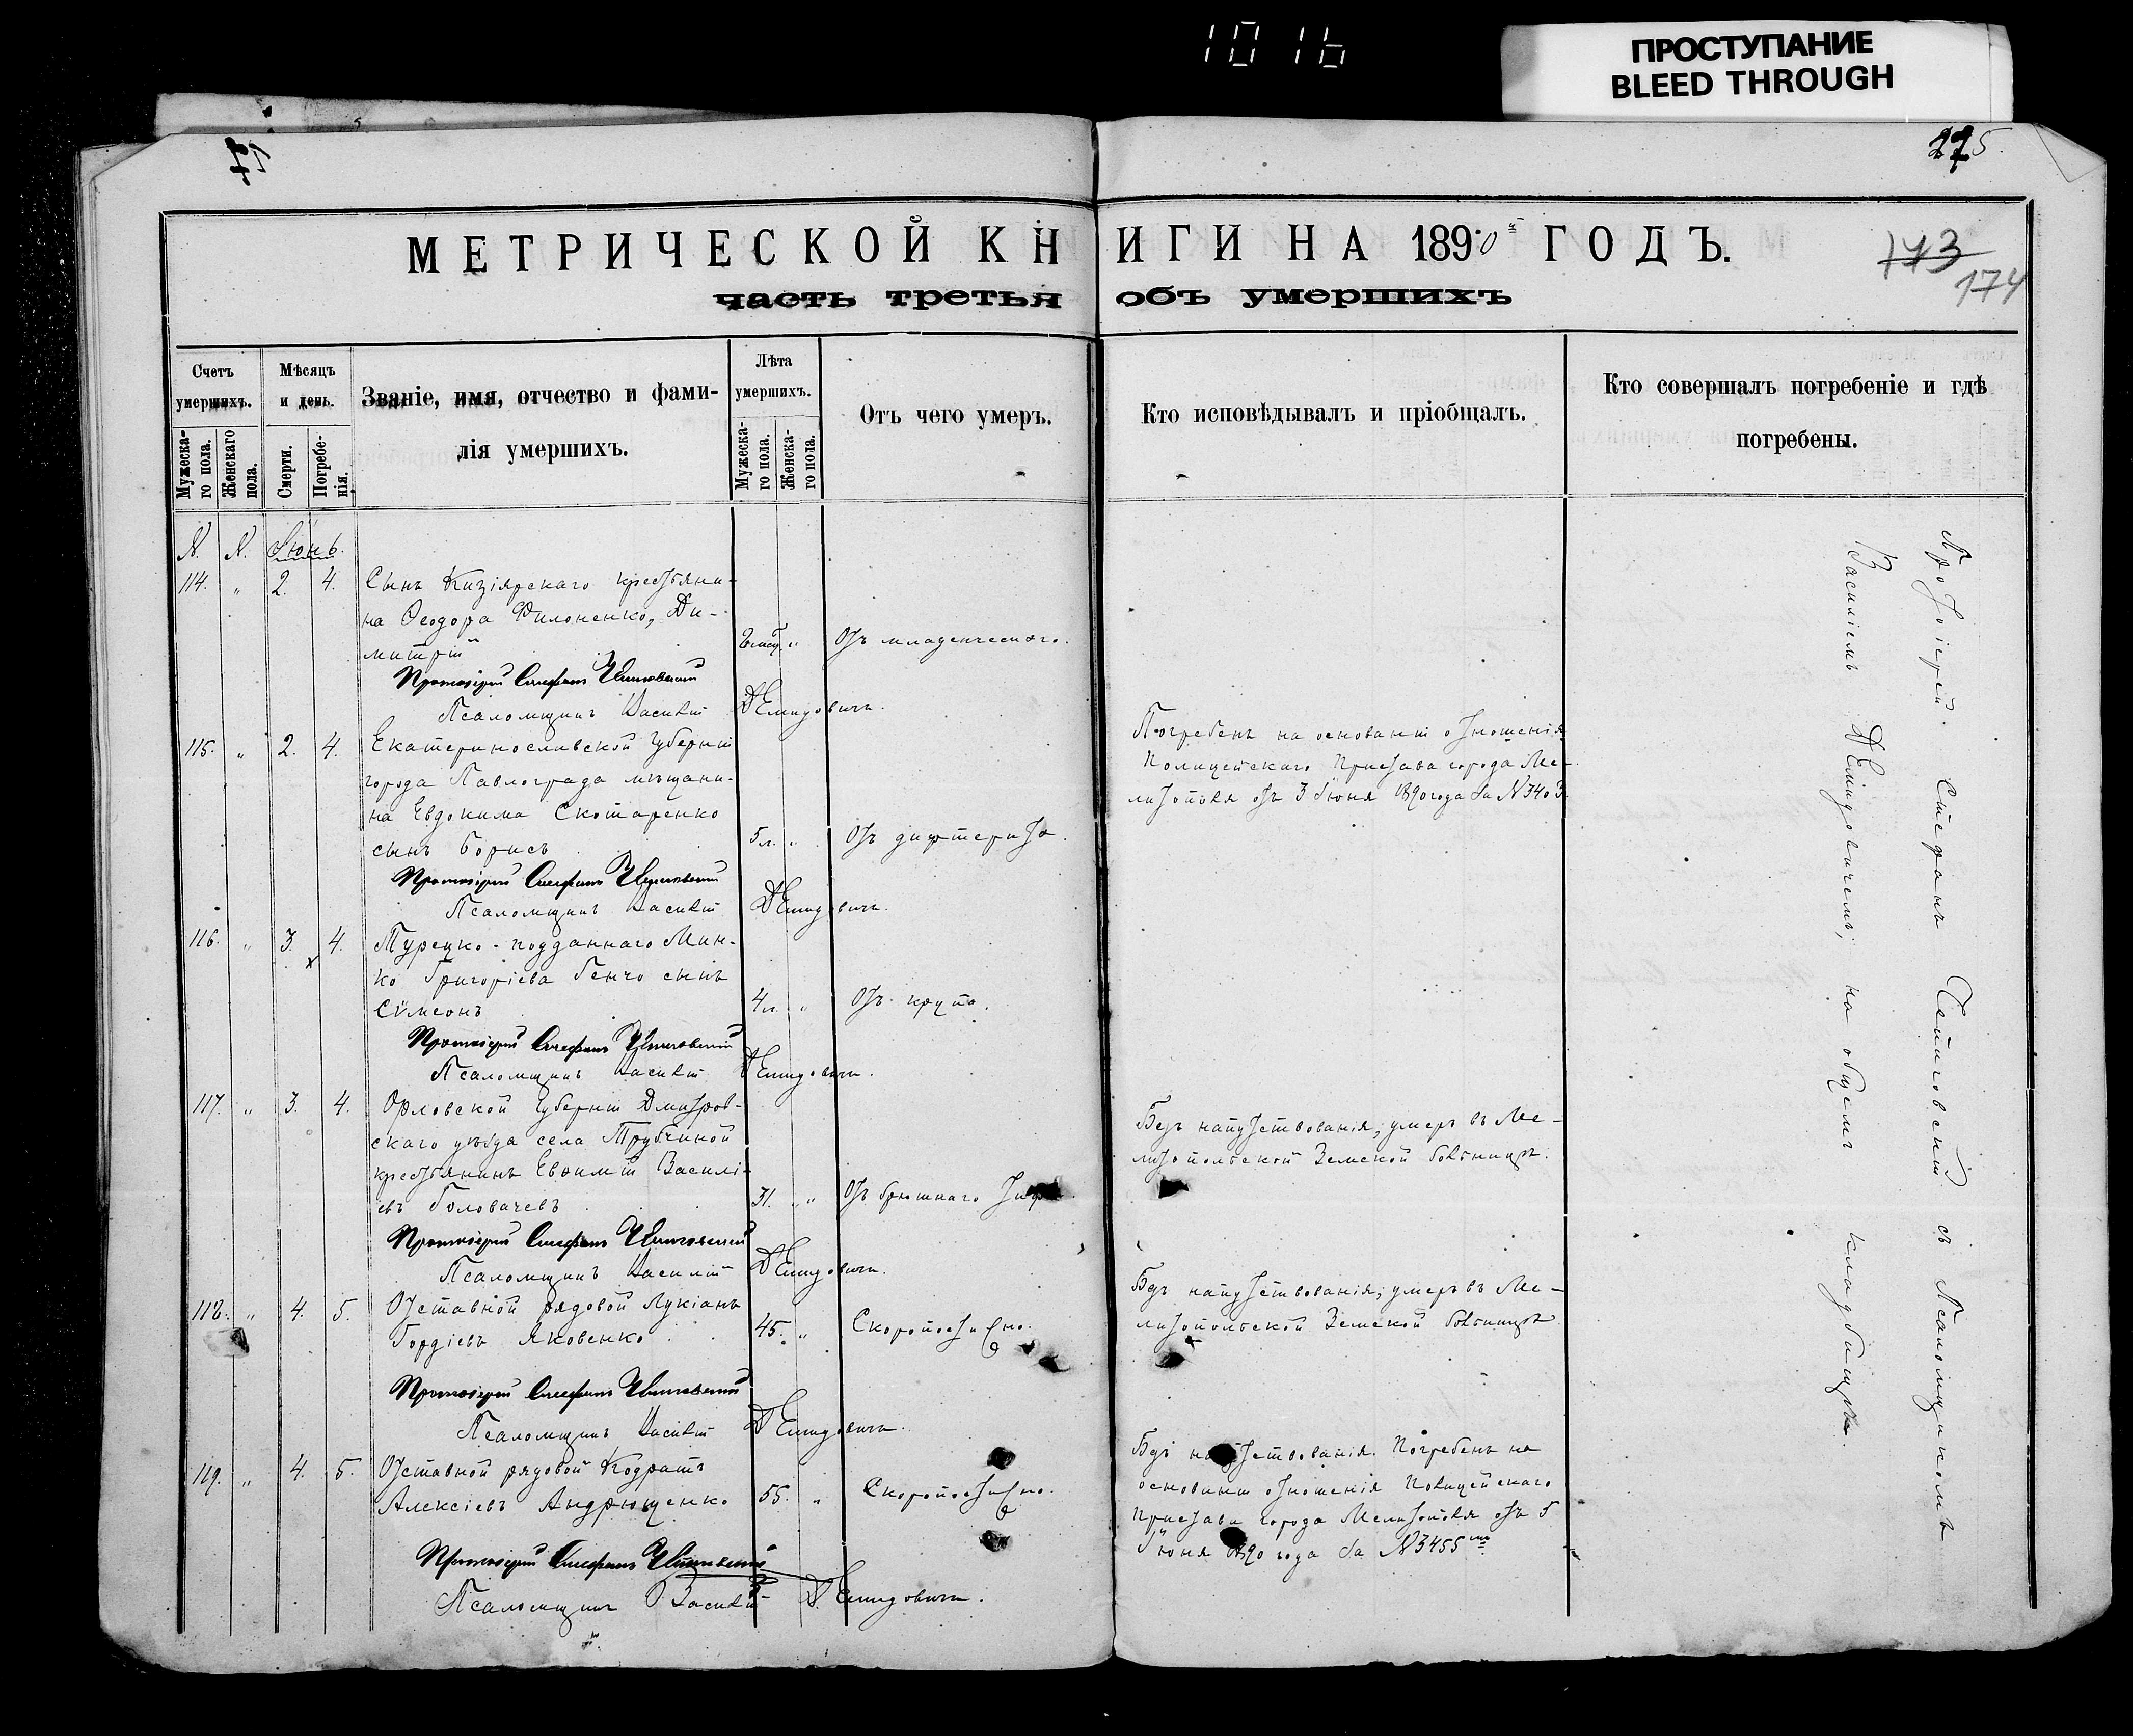 10 16
ПРОСТУПАНИЕ
BLEED THROUGH
17
275.
МЕТРИЧЕСКОЙ КНИГИ НА 1890й ГОДЪ.
173
174
часть третья объ умершихъ
Счетъ умершихъ.
Мужескаго пола.
Женскаго пола.
Мѣсяцъ и день.
Смерти.
Погребенія.
Званіе, имя, отчество и фамилія умершихъ.
Лѣта умершихъ.
Мужескаго пола.
Женскаго пола.
Отъ чего умеръ.
Кто исповѣдывалъ и пріобщалъ.
Кто совершалъ погребеніе и гдѣ погребены.
N. N. Іюнь.
114. " 2. 4. Сынъ Кизіярскаго крестьяни-
на Ѳеодора Филоненко, Ди-
митрій " Отъ младенческаго.
Протоіерей Стефанъ
Псаломщикъ Василій Демидовичъ.
115. " 2. 4. Екатеринославской Губерніи
города Павлограда мѣщани-
на Евдокима Скотаренко
сынъ Борисъ 5 л. " Отъ дифтерита.
Погребенъ на основаніи отношенія
Полицейскаго Пристава города Ме-
литополя отъ 3 Іюня 1890 года за N 3403.
Протоіерей Стефанъ
Псаломщикъ Василій Демидовичъ.
116. " 3. 4. Турецко-подданнаго Мин-
х
ко Григоріева Генчо сынъ
Сѵмеонъ 4 л. " Отъ крупа.
Протоіерей Стефанъ
Псаломщикъ Василій Демидовичъ.
117. " 3. 4. Орловской Губерніи Дмитров-
скаго уѣзда села Трубчиной
крестьянинъ Евѳимій Василі-
евъ Головачевъ 31. " Отъ брюшнаго
Безъ напутствованія; умеръ въ Ме-
литопольской Земской больницѣ.
Протоіерей Стефанъ
Псаломщикъ Василій Демидовичъ.
118. " 4. 5. Отставной рядовой Лукіанъ
Гордіевъ Яковенко 45. " Скоропостижно.
Безъ напутствованія; умеръ въ Ме-
литопольской Земской больницѣ.
Протоіерей Стефанъ
Псаломщикъ Василій Демидовичъ.
119. " 4. 5. Отставной рядовой Кодратъ
Алексіевъ Андрющенко 55. " Скоропостижно.
Безъ напутствованія. Погребенъ на
основаніи отношенія Полицейскаго
Пристава города Мелитополя отъ 5
Іюня 1890 года за N 3455
Протоіерей Стефанъ
Псаломщикъ Василій Демидовичъ.
Протоіерей Стефанъ съ Псаломщикомъ
Василіемъ Демидовичемъ; на общемъ кладбищѣ.